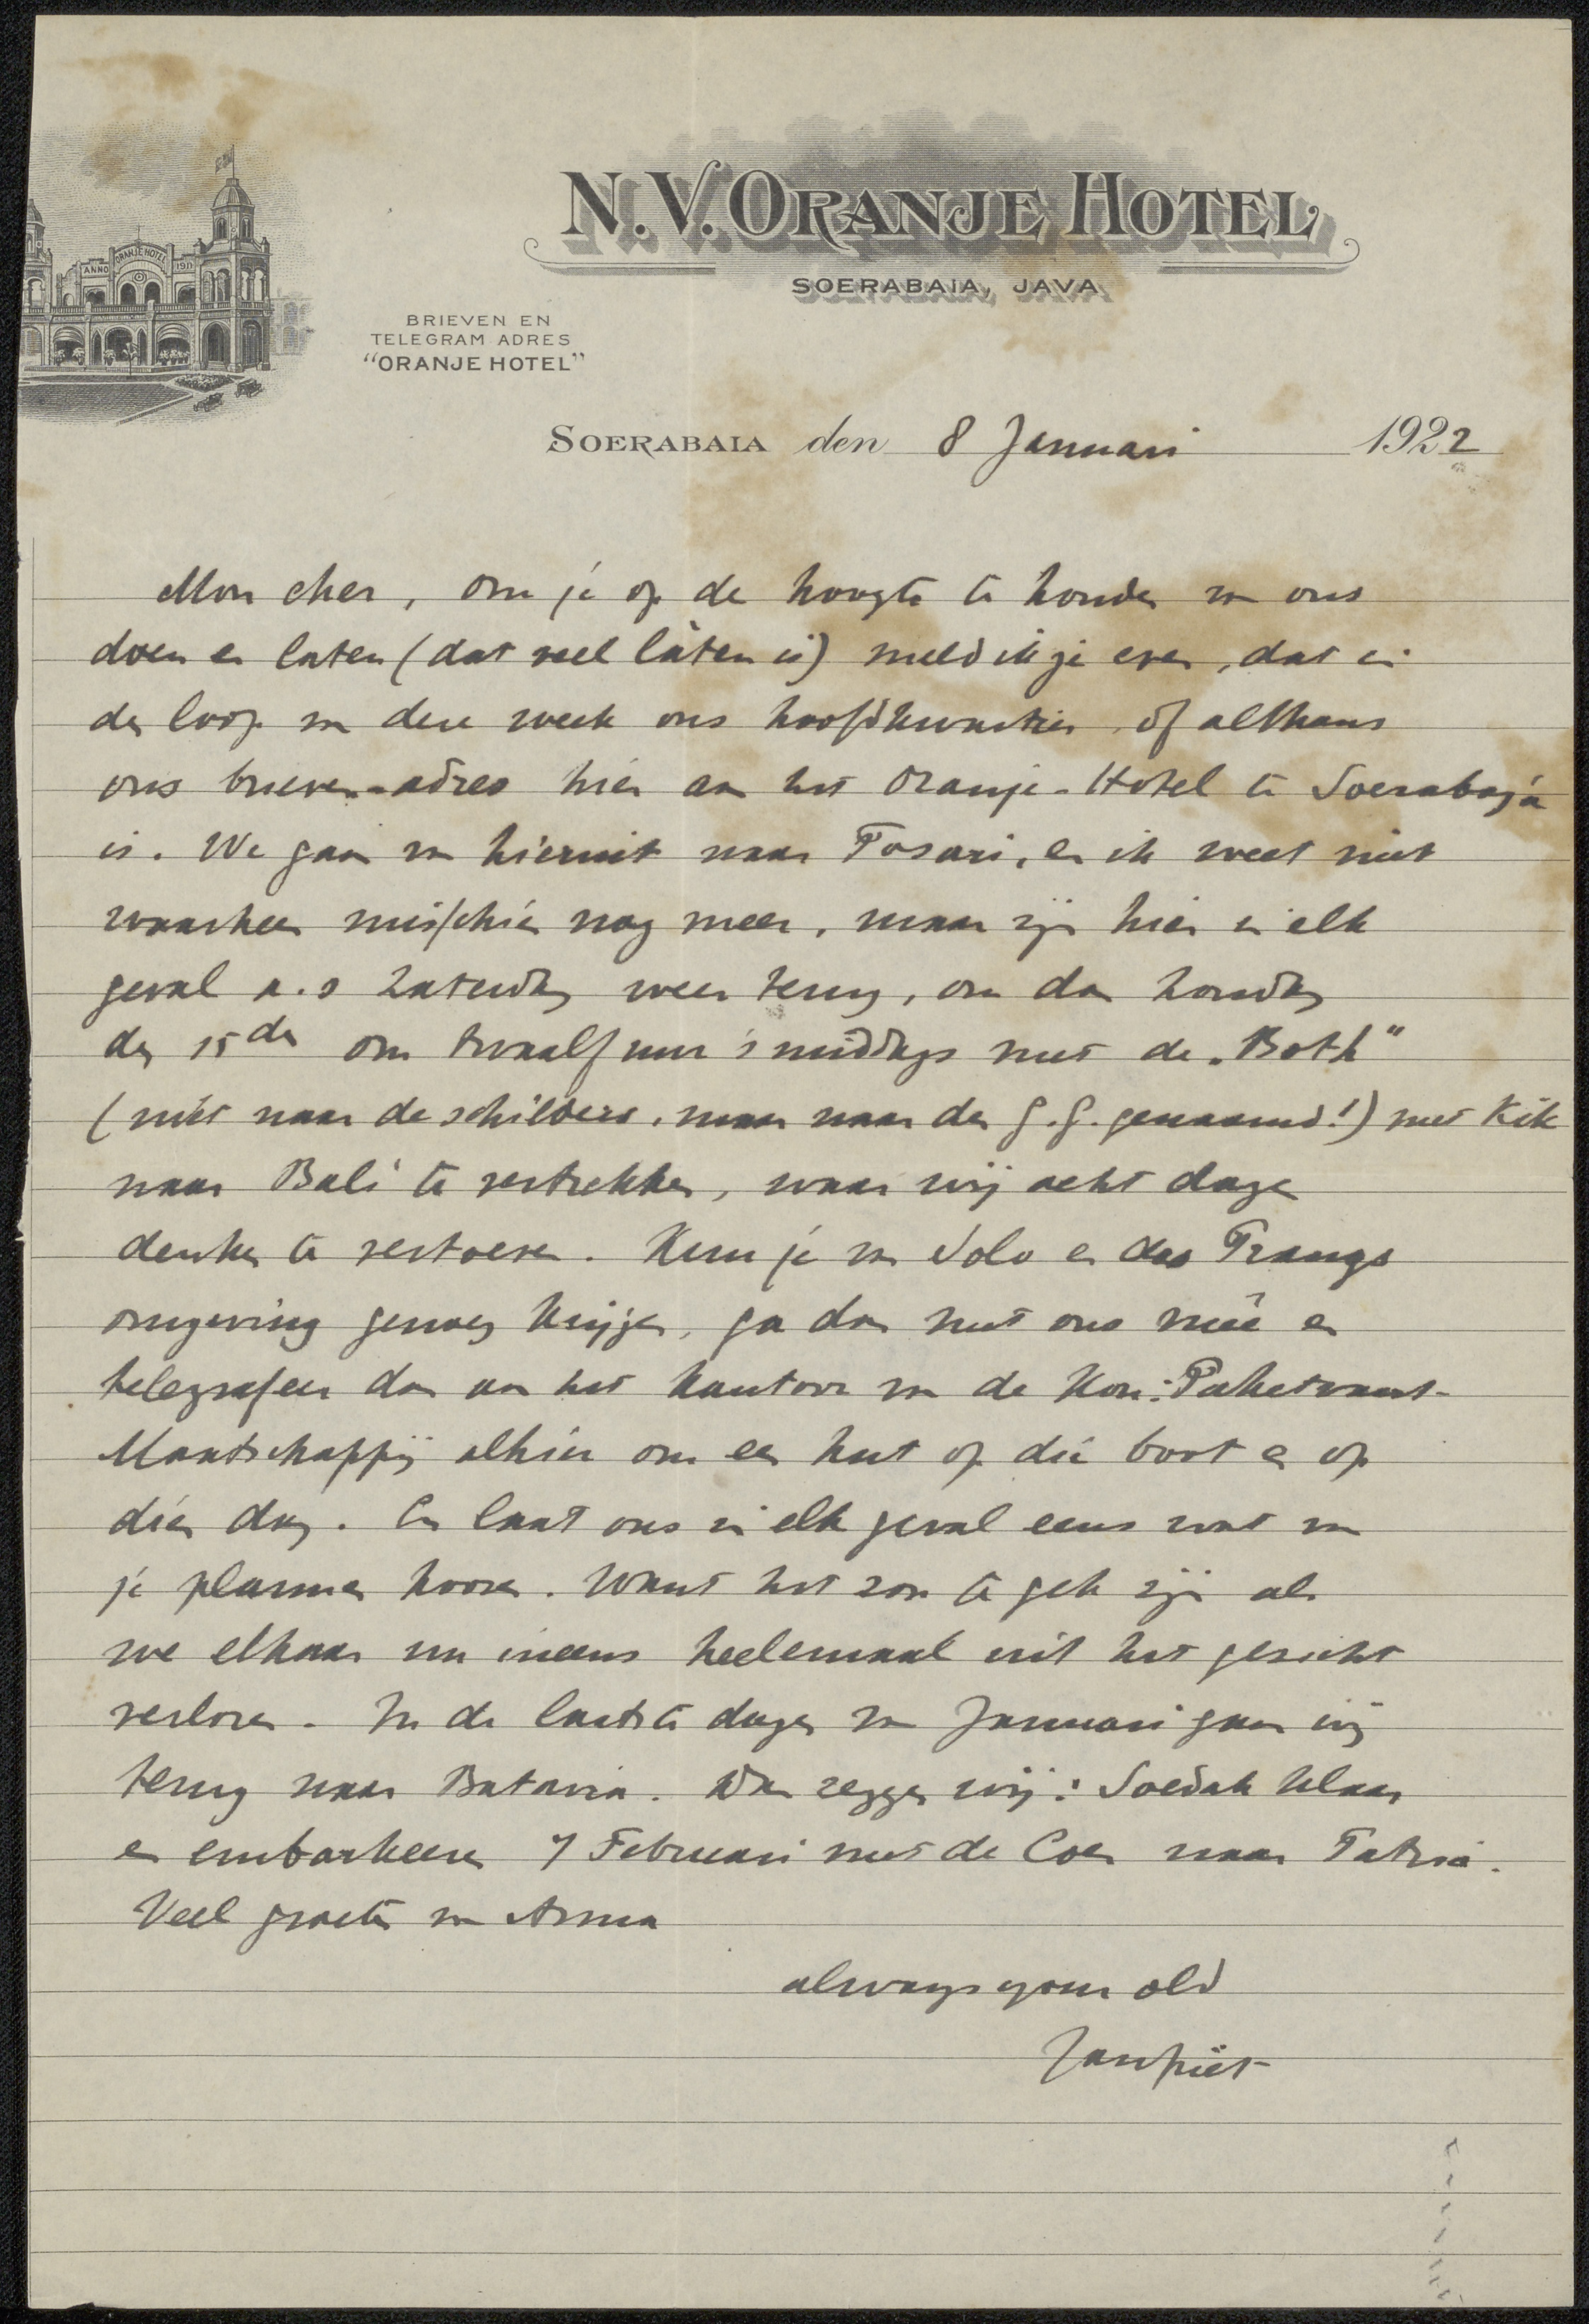 N.V. ORANJE HOTEL
SOERABAIA, JAVA
ANNO ORANJE HOTEL 1911
BRIEVEN EN
TELEGRAM ADRES
"ORANJE HOTEL"
SOERABAIA den 8 Januari 1922
Mon cher, om je op de hoogte te houden van ons
doen en laten (dat veel làten is) meld ik je even, dat in
den loop van deze week ons hoofdkwartier, of althans
ons brieven-adres hier aan het Oranje-Hotel te Soerabaja
is. We gaan van hieruit naar Tosari, en ik weet niet
waarheen misschien nog meer, maar zijn hier in elk
geval a.s Zaterdag weer terug, om dan Zondag
den 15den om twaalf uur 's middags met de "Both"
(niet naar de schilders, maar naar den G.G. genaamd!) met Kik
naar Bali te vertrekken, waar wij acht dagen
denken te vertoeven. Kun je van Solo en des Prangs
omgeving genoeg krijgen, ga dan met ons meê en
telegrafeer dan aan het kantoor van de Kon: Paketvaart-
Maatschappij alhier om een hut op die boot en op
dien dag. En laat ons in elk geval eens wat van
je plannen hooren. Want het zou te gek zijn als
we elkaar nu ineens heelemaal uit het gezicht
verloren. In de laatste dagen van Januari gaan wij
terug naar Batavia. Dan zeggen wij: Soedah klaar
en embarkeeren 7 Februari met de Coen naar Patria.
Veel groeten van Anna
always your old
Janpiet